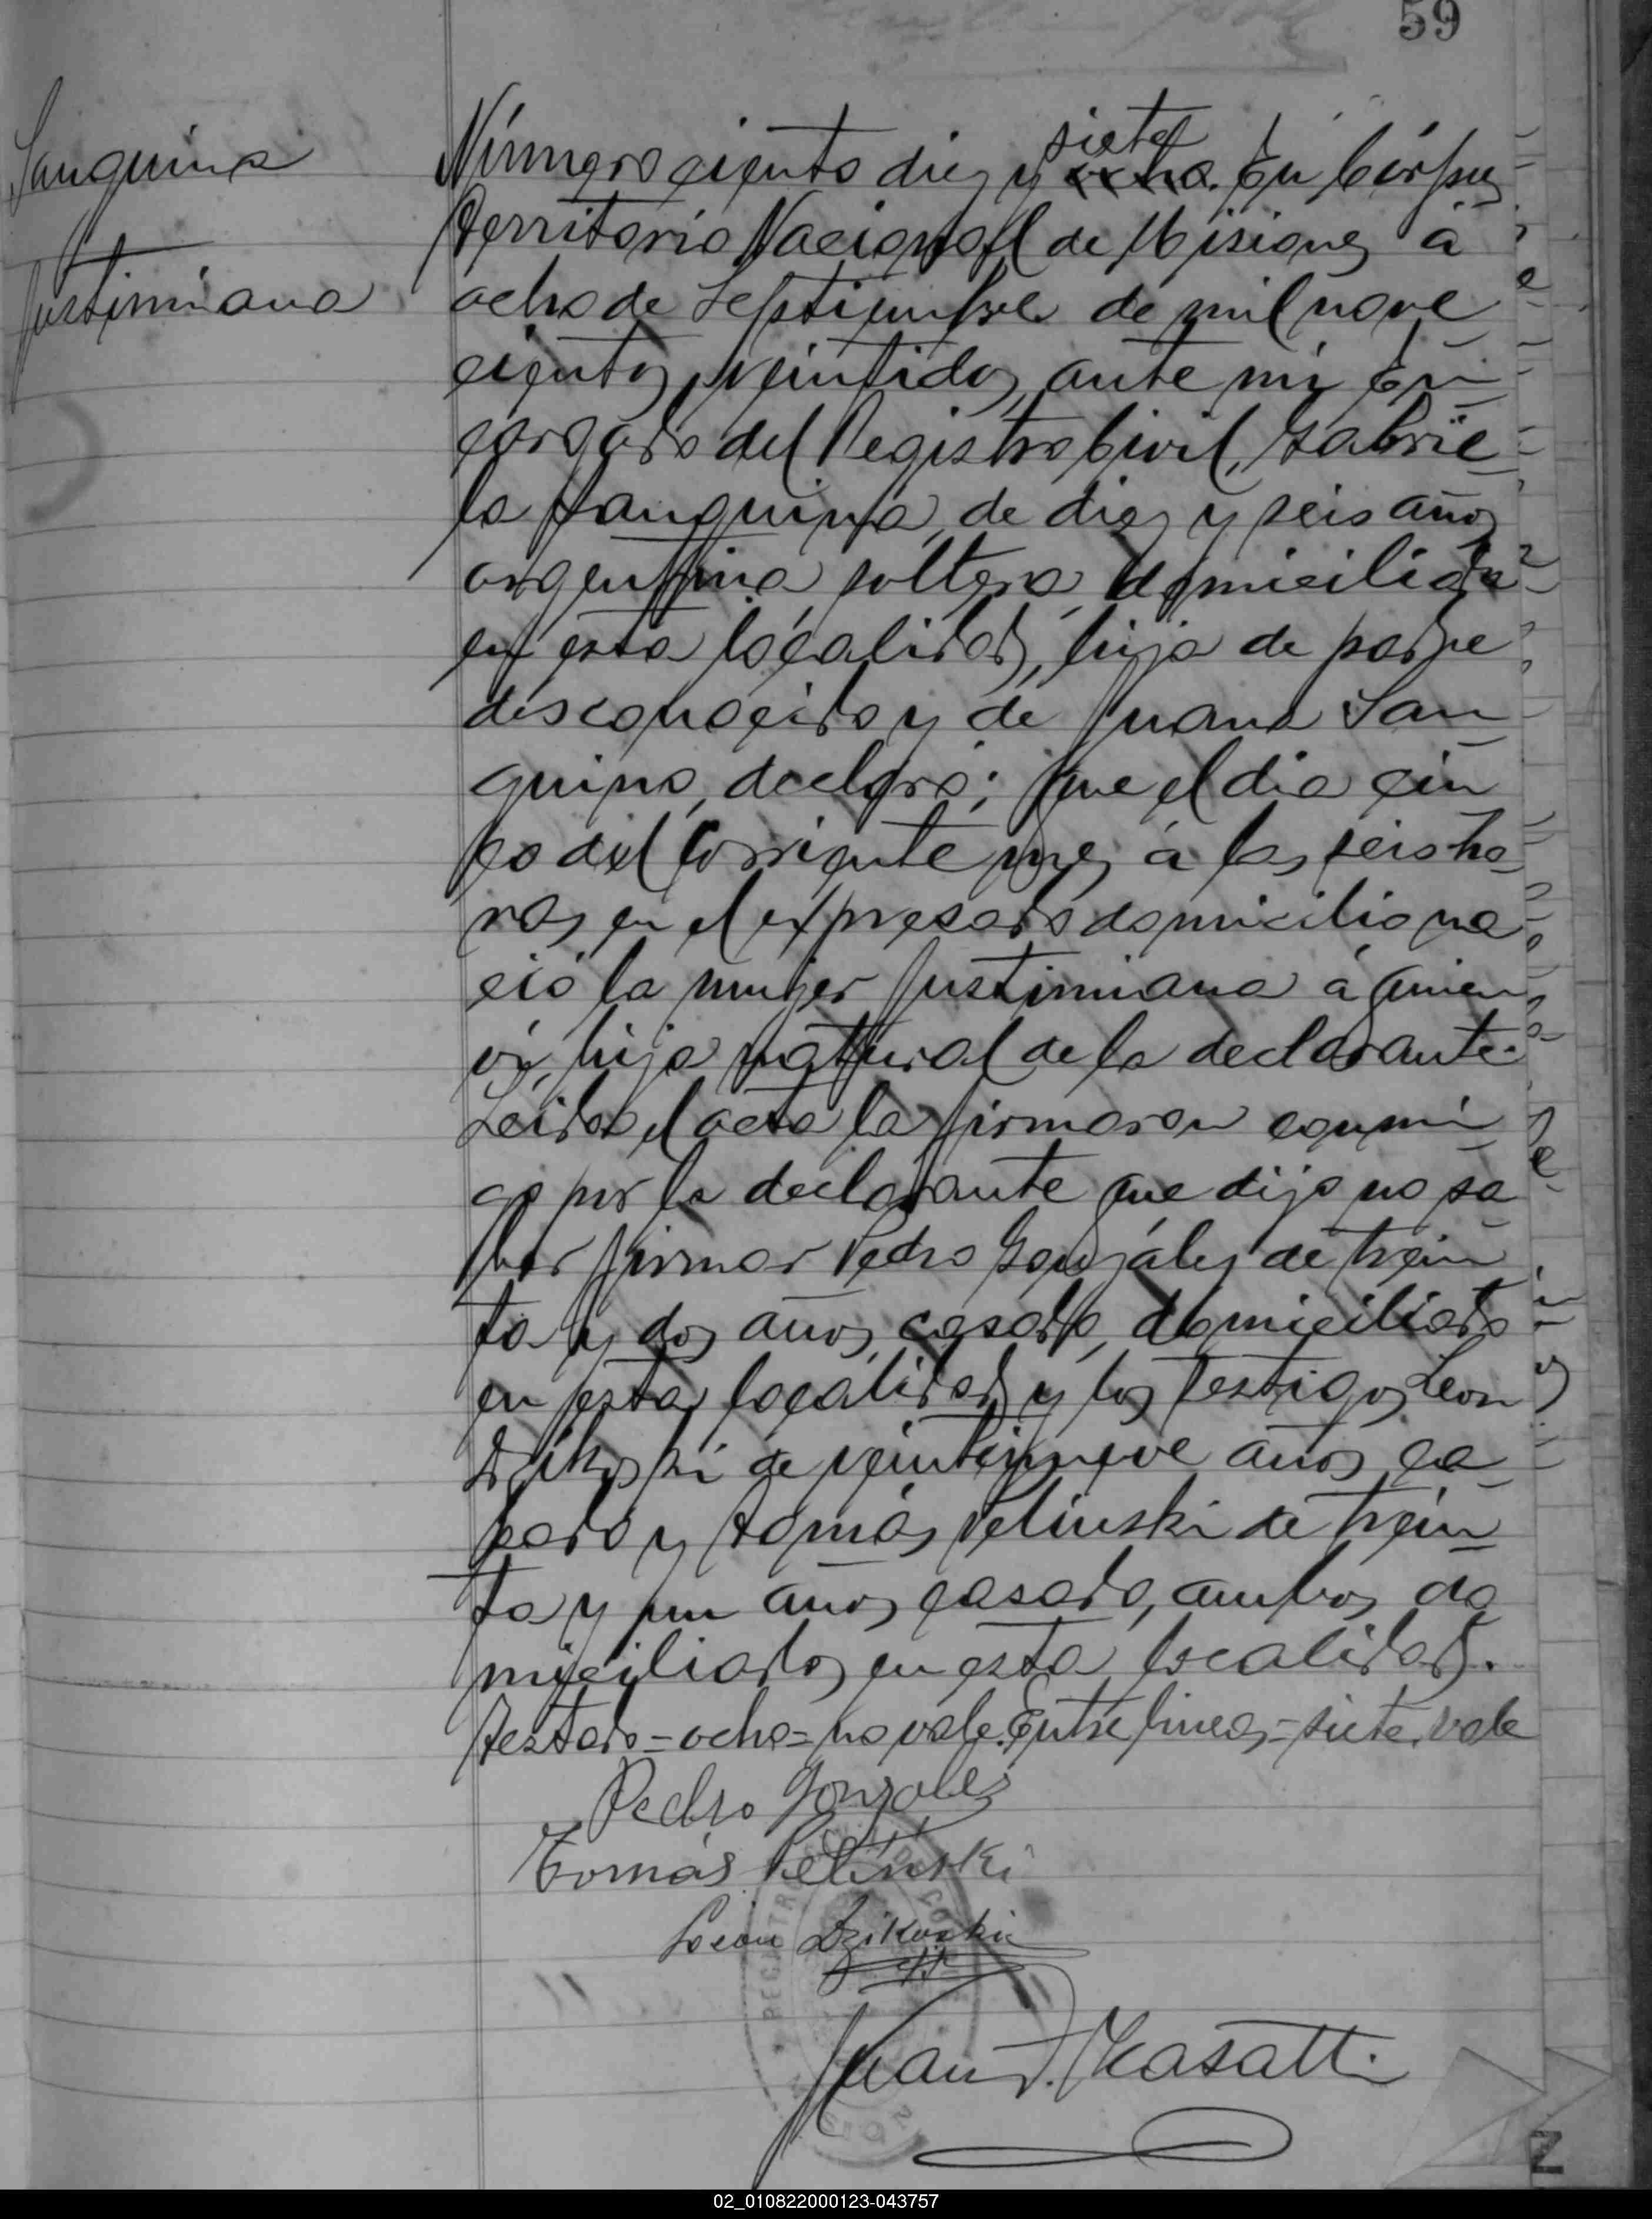 59
Sanquina
Justiniana
siete
Número ciento diez y ocho. En Córpus
Territorio Nacional de Misiones á
ocho de Septiembre de mil nove
cientos veintidos, ante mi En
cargado del Registro Civil, Gabrie
la Sanquina, de diez y seis años
argentina soltera, domiciliada
en esta localidad, hija de padre
desconocido y de Juana San
quina, declaró: Que el dia cin
co del corriente mes á las seis ho
ras en el expresado domicilio na
ció la mujer Justiniana á quien
ví, hija natural de la declarante.
Leida el acta la firmaron conmi
go por la declarante que dijo no sa
ber firmar Pedro Gonzáles de trein
ta y dos años, casado, domiciliado
en esta localidad y los testigos Leon
Dzikoski de veintinueve años ca
sado y Tomás Pelinski de trein
ta y un años casado, ambos do
miciliados en esta localidad.
Testado=ocho=no vale. Entre lineas=siete. vale
Pedro Gonzales
Tomás Pelinski
Leon Dzikoski
Juan J. Kasatti
REGISTRO
Z
02_010822000123-043757